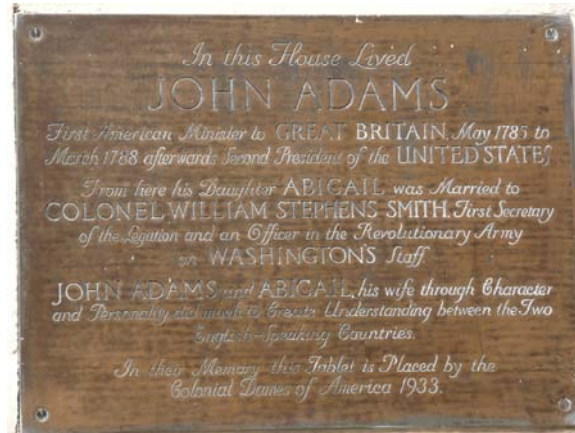 In this House Lived
JOHN ADAMS
First American Minister to GREAT BRITAIN, May 1785 to
March 1788 afterwards Second President of the UNITED STATES
From here his Daughter ABIGAIL was Married to
COLONEL WILLIAM STEPHENS SMITH, First Secretary
of the Legation and an Officer in the Revolutionary Army
on WASHINGTON'S Staff
JOHN ADAMS and ABIGAIL, his wife through Character
and Personality did much to Create Understanding between the Two
English-Speaking Countries.
In their Memory this Tablet is Placed by the
Colonial Dames of America 1933.